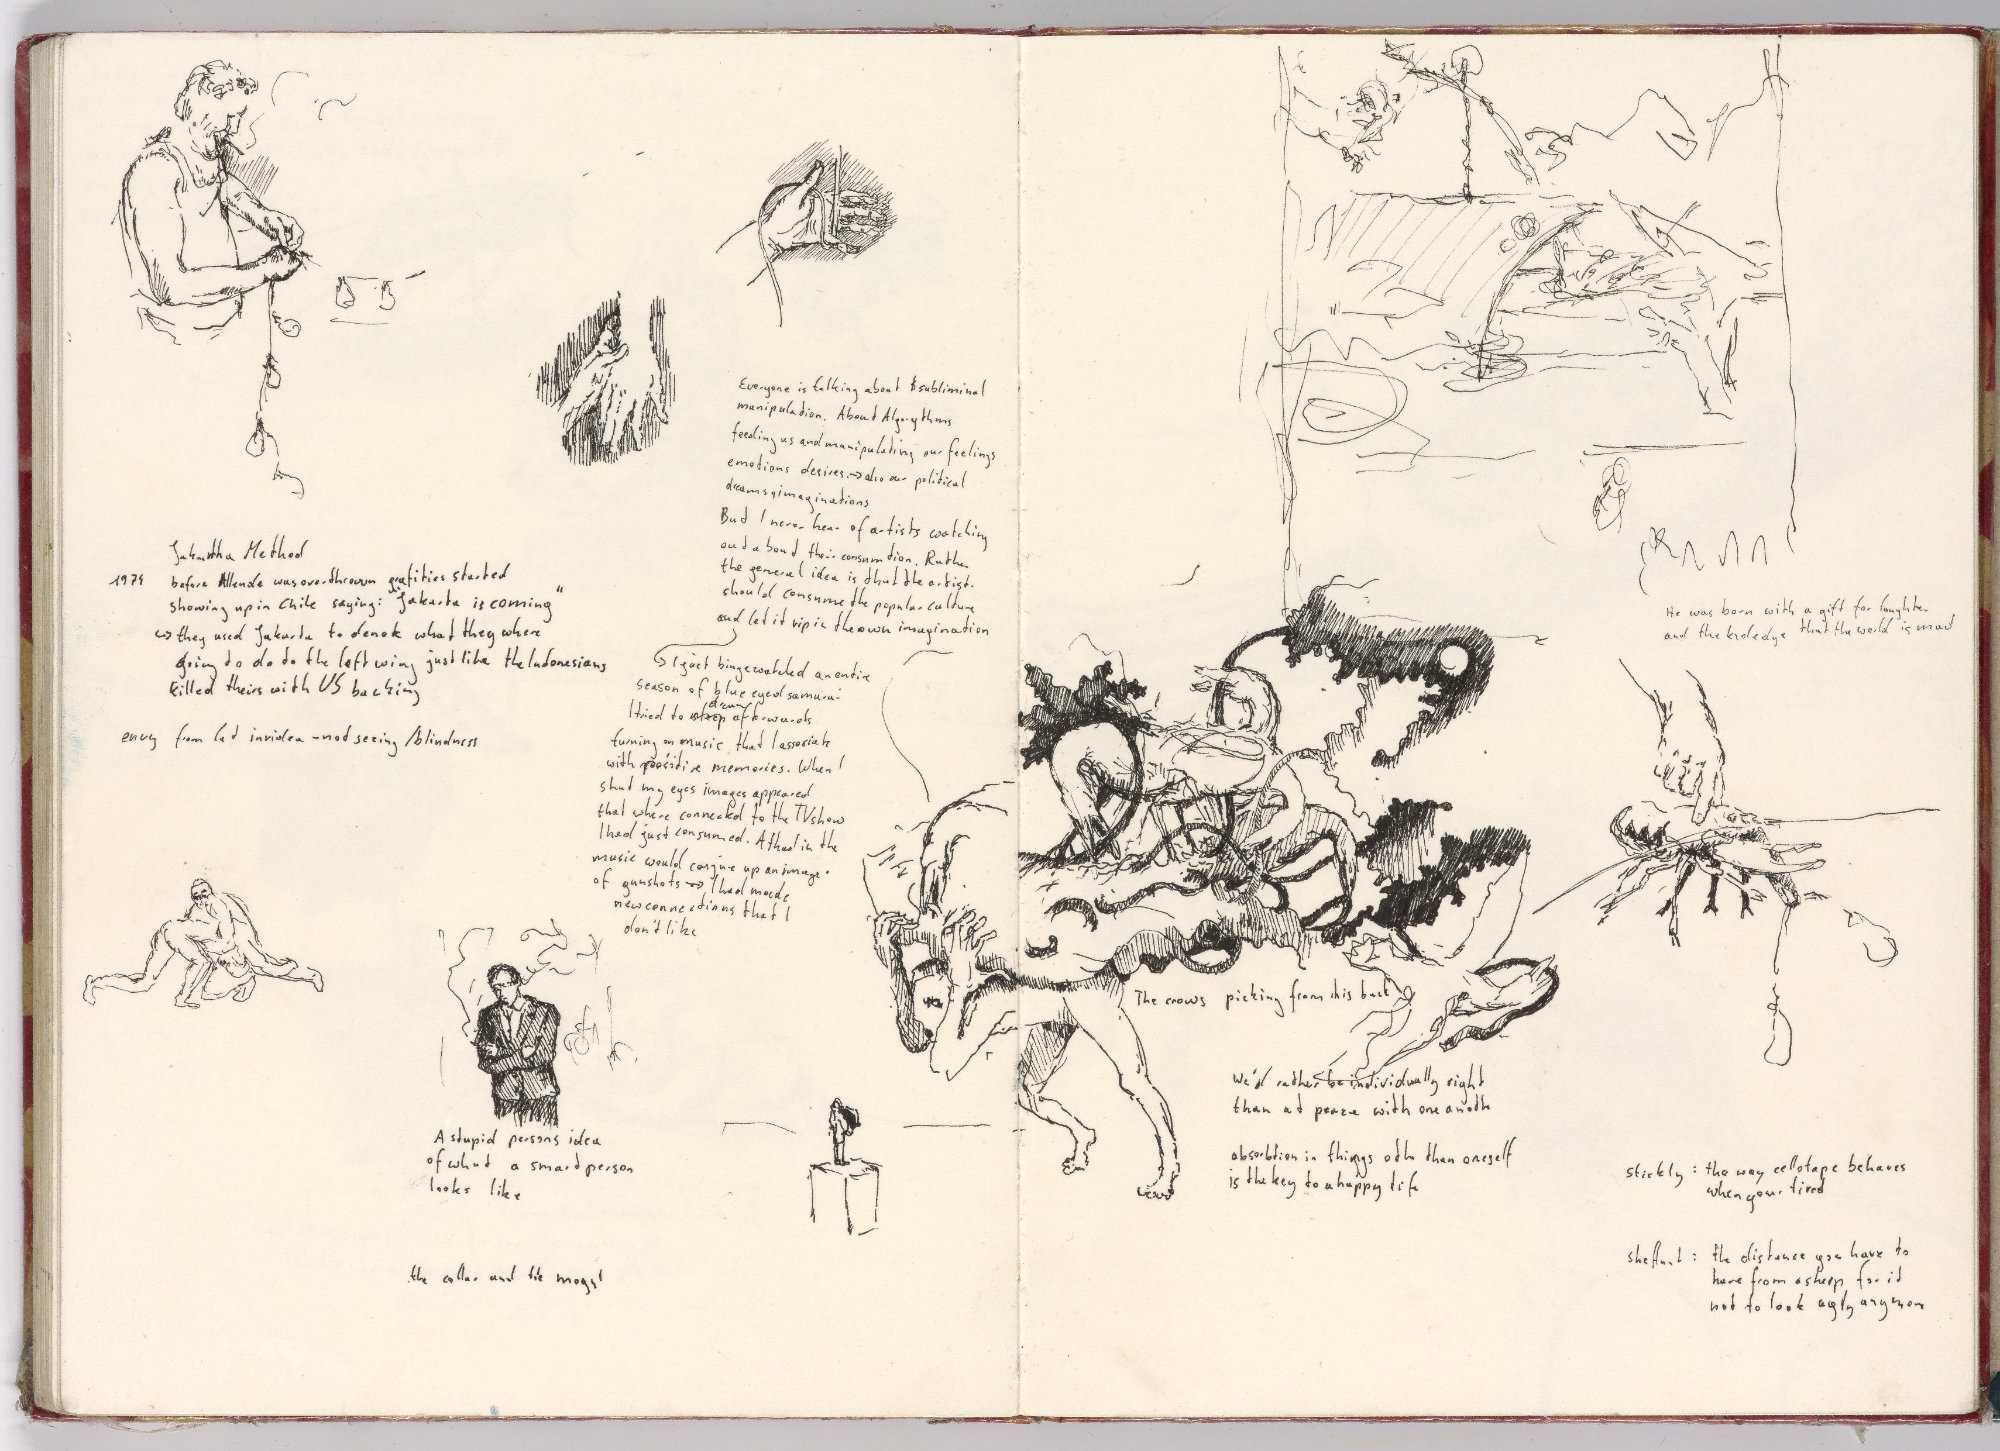 Jakartha Method
1974 before Allende was overthrown grafities started
showing up in Chile saying: "Jakarta is coming"
↪ they used Jakarta to denote what they where
going to do to the left wing just like the Indonesians
killed theirs with US backing
envy from lat invidea - not seeing / blindness
Everyone is talking about subliminal
manipulation. About Algorythms
feeding us and manipulating our feelings
emotions desires → also our political
dreams, imaginations
But I never hear of artists watching
out about their consumtion. Rather
the general idea is that the artist
should consume the popular culture
and let it rip in the own imagination
↪ I just binge watched an entire
season of blue eyed samurai
I tried to sleep afterwards
turning on music that I associate
with positive memories. When I
shut my eyes images appeared
that where connected to the TV show
I had just consumed. A thud in the
music would conjure up an image
of gunshots → I had made
new connections that I
don't like
A stupid persons idea
of what a smart person
looks like
the collar and tie
He was born with a gift for laughter
and the knoledge that the world is mad
The crows picking from his back
We'd rather be individually right
than at peace with one another
absorbtion in things other than oneself
is the key to a happy life
stickly : the way cellotape behaves
when your tired
: the distance you have to
have from a sheep for it
not to look ugly anymore